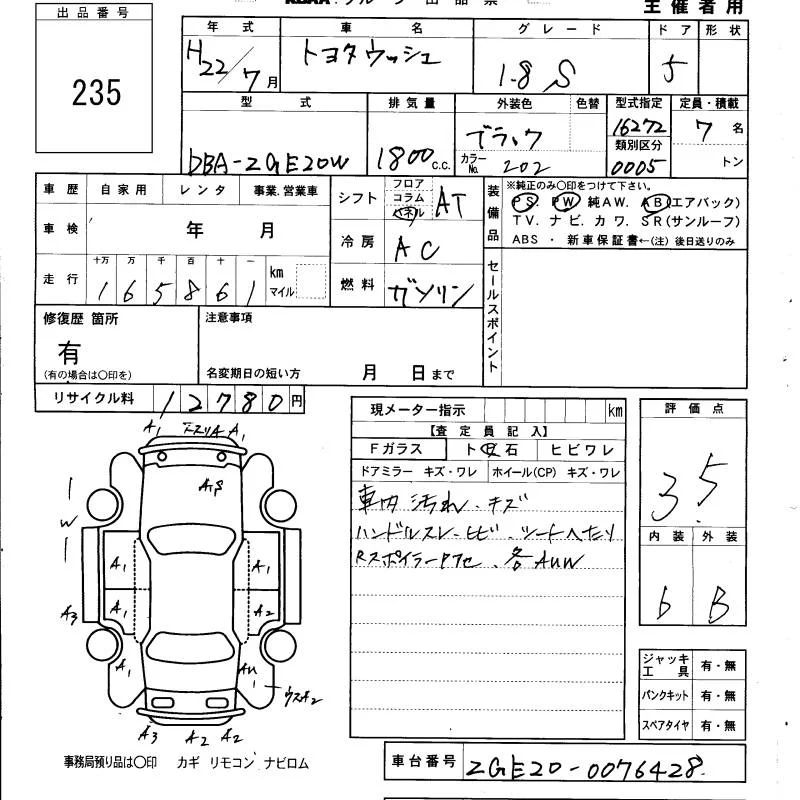 出品番号
235
主催者用
年式 車名 グレード ドア 形状
H22/7月 トヨタウィッシュ 1.8 S 5
型式 排気量 外装色 色替 型式指定 定員・積載
DBA-ZGE20W 1800c.c. ブラック 16272 7名
カラーNo. 202 類別区分 0005 トン
車歴 自家用 レンタ 事業.営業車
車検 年 月
走行 十万 万 千 百 十 一 km
1 6 5 8 6 1 マイル
シフト フロア コラム パネル AT
冷房 AC
燃料 ガソリン
装備品
※純正のみ〇印をつけて下さい。
PS. PW 純AW. AB(エアバック)
TV. ナビ. カワ. SR(サンルーフ)
ABS ・ 新車保証書←(注) 後日送りのみ
セールスポイント
修復歴 箇所
有
(有の場合は〇印を)
注意事項
名変期日の短い方 月 日まで
リサイクル料 12780円
現メーター指示 km
【査定員記入】
Fガラス ト 石 ヒビワレ
ドアミラー キズ・ワレ ホイール(CP) キズ・ワレ
車内 汚れ・キズ
ハンドルスレ・ヒビ・シートヘタリ
Rスポイラー 各AUW
評価点
3.5
内装 外装
b B
A1 A1
W
A1 A1
A3 A1 A2
A1 AU ウスA2
A3 A2 A2
ジャッキ工具 有・無
パンクキット 有・無
スペアタイヤ 有・無
事務局預り品は〇印 カギ リモコン ナビロム
車台番号 ZGE20-0076428.